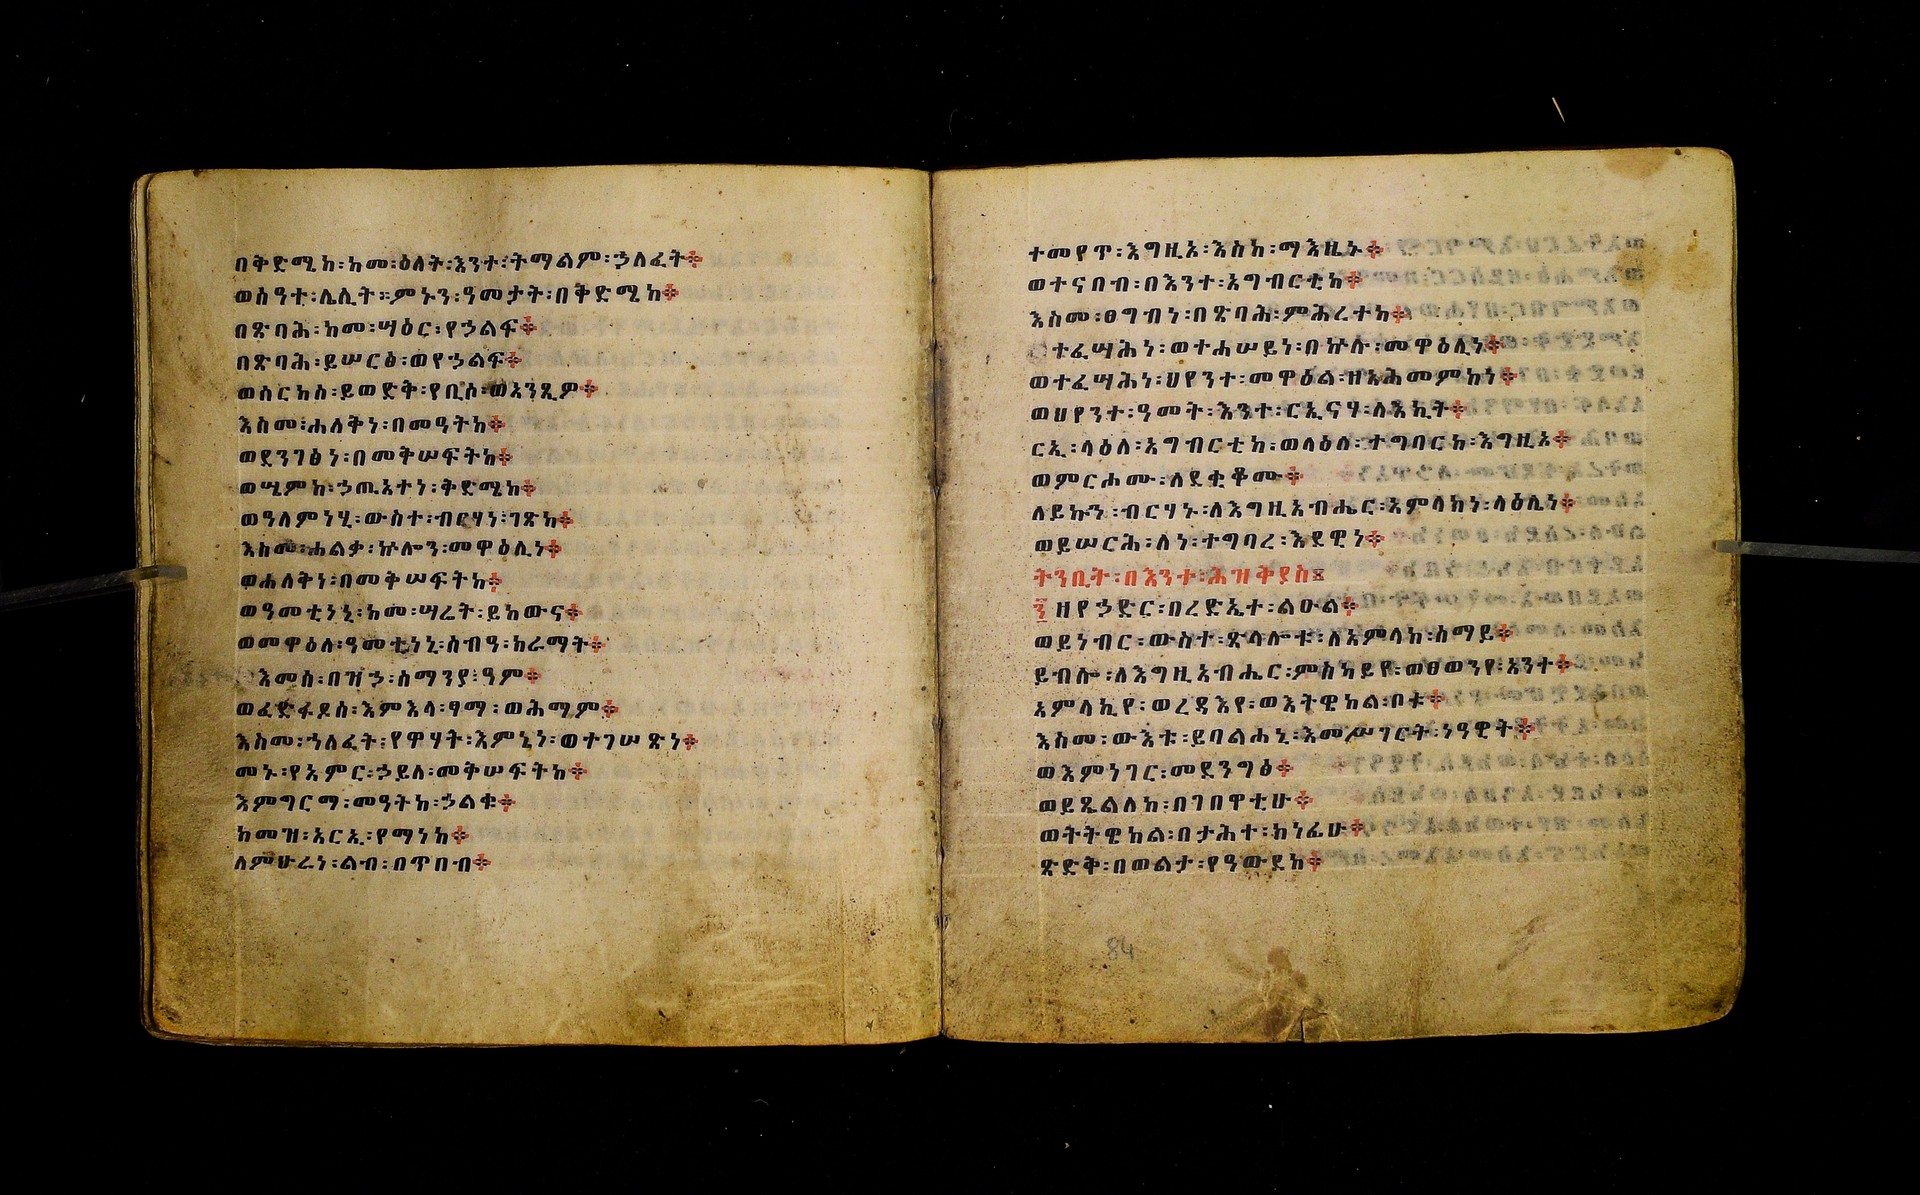 በቅድሜከ፡ከመ፡ዕለት፡እንተ፡ትማልም፡ኃለፈት፨
ወሰዓተ፡ሌሊት፡፡ምኑን፡ዓመታት፡በቅድሜከ፨
በጽባሕ፡ከመ፡ሣዕር፡የኃልፍ፨
በጽባሕ፡ይሠርፅ፡ወየኃልፍ፨
ወሰርከሰ፡ይወድቅ፡የቢሶ፡ወአንጺዎ፨
እስመ፡ሐለቅነ፡በመዓትከ፨
ወደንገፅነ፡በመቅሠፍትከ፨
ወሤምከ፡ኃጢአተነ፡ቅድሜከ፨
ወዓለምነሂ፡ውስተ፡ብርሃነ፡ገጽከ፨
እስመ፡ሐልቃ፡ኵሎን፡መዋዕሊነ፨
ወሐለቅነ፡በመቅሠፍትከ፨
ወዓመቲነኒ፡ከመ፡ሣሬት፡ይከውና፨
ወመዋዕለ፡ዓመቲነኒ፡ሰብዓ፡ክራማት፨
እመሰ፡በዝኃ፡ሰማንያ፡ዓም፨
ወፈድፋደሰ፡እምእላ፡ፃማ፡ወሕማም፨
እስመ፡ኀለፈት፡የዋሃት፡እምኔነ፡ወተገሠጽነ፨
መኑ፡የአምር፡ኃይለ፡መቅሠፍትከ፨
እምግርማ፡መዓትከ፡ኃልቁ፨
ከመዝ፡አርኢ፡የማነከ፨
ለምሁራነ፡ልብ፡በጥበብ፨
ተመየጥ፡እግዚኦ፡እስከ፡ማእዜኑ፨
ወተናበብ፡በእንተ፡አግብርቲከ፨
እስመ፡ፀግብነ፡በጽባሕ፡ምሕረተከ፨
ተፈሣሕነ፡ወተሐሠይነ፡በኵሉ፡መዋዕሊነ፨
ወተፈሣሕነ፡ህየንተ፡መዋዕል፡ዘአሕመምከነ፨
ወህየንተ፡ዓመት፡እንተ፡ርኢናሃ፡ለእኪት፨
ርኢ፡ላዕለ፡አግብርቲከ፡ወላዕለ፡ተግባርከ፡እግዚኦ፨
ወምርሐሙ፡ለደቂቆሙ፨
ለይኩን፡ብርሃኑ፡ለእግዚአብሔር፡አምላክነ፡ላዕሌነ፨
ወይሠርሕ፡ለነ፡ተግባረ፡እደዊነ፨
ትንቢት፡በእንተ፡ሕዝቅያስ፨
፺ዘየኃድር፡በረድኤተ፡ልዑል፨
ወይነብር፡ውስተ፡ጽላሎቱ፡ለአምላከ፡ሰማይ፨
ይብሎ፡ለእግዚአብሔር፡ምስካይየ፡ወፀወንየ፡አንተ፨
አምላኪየ፡ወረዳእየ፡ወእትዌከል፡ቦቱ፨
እስመ፡ውእቱ፡ይባልሐኒ፡እመሥገርት፡ነዓዊት፨
ወእምነገር፡መደንግፅ፨
ወይጼልለከ፡በገበዋቲሁ፨
ወትትዌከል፡በታሕተ፡ክነፊሁ፨
ጽድቅ፡በወልታ፡የዓውደከ፨
84